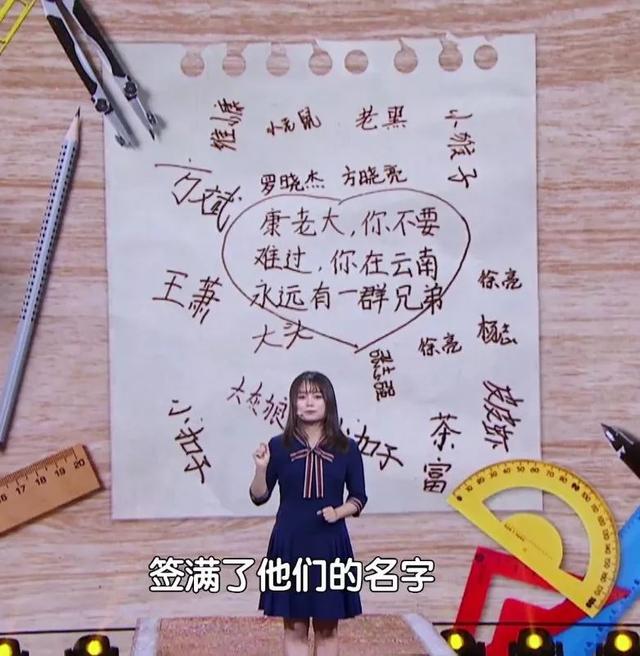 小老鼠
老黑
小猴子
万斌
罗晓杰 方晓亮
康老大，你不要
难过，你在云南
永远有一群兄弟
王萧
大头
徐亮
徐亮
杨志
张志强
大灰狼
茶富
签满了他们的名字
16 17 18 19 20